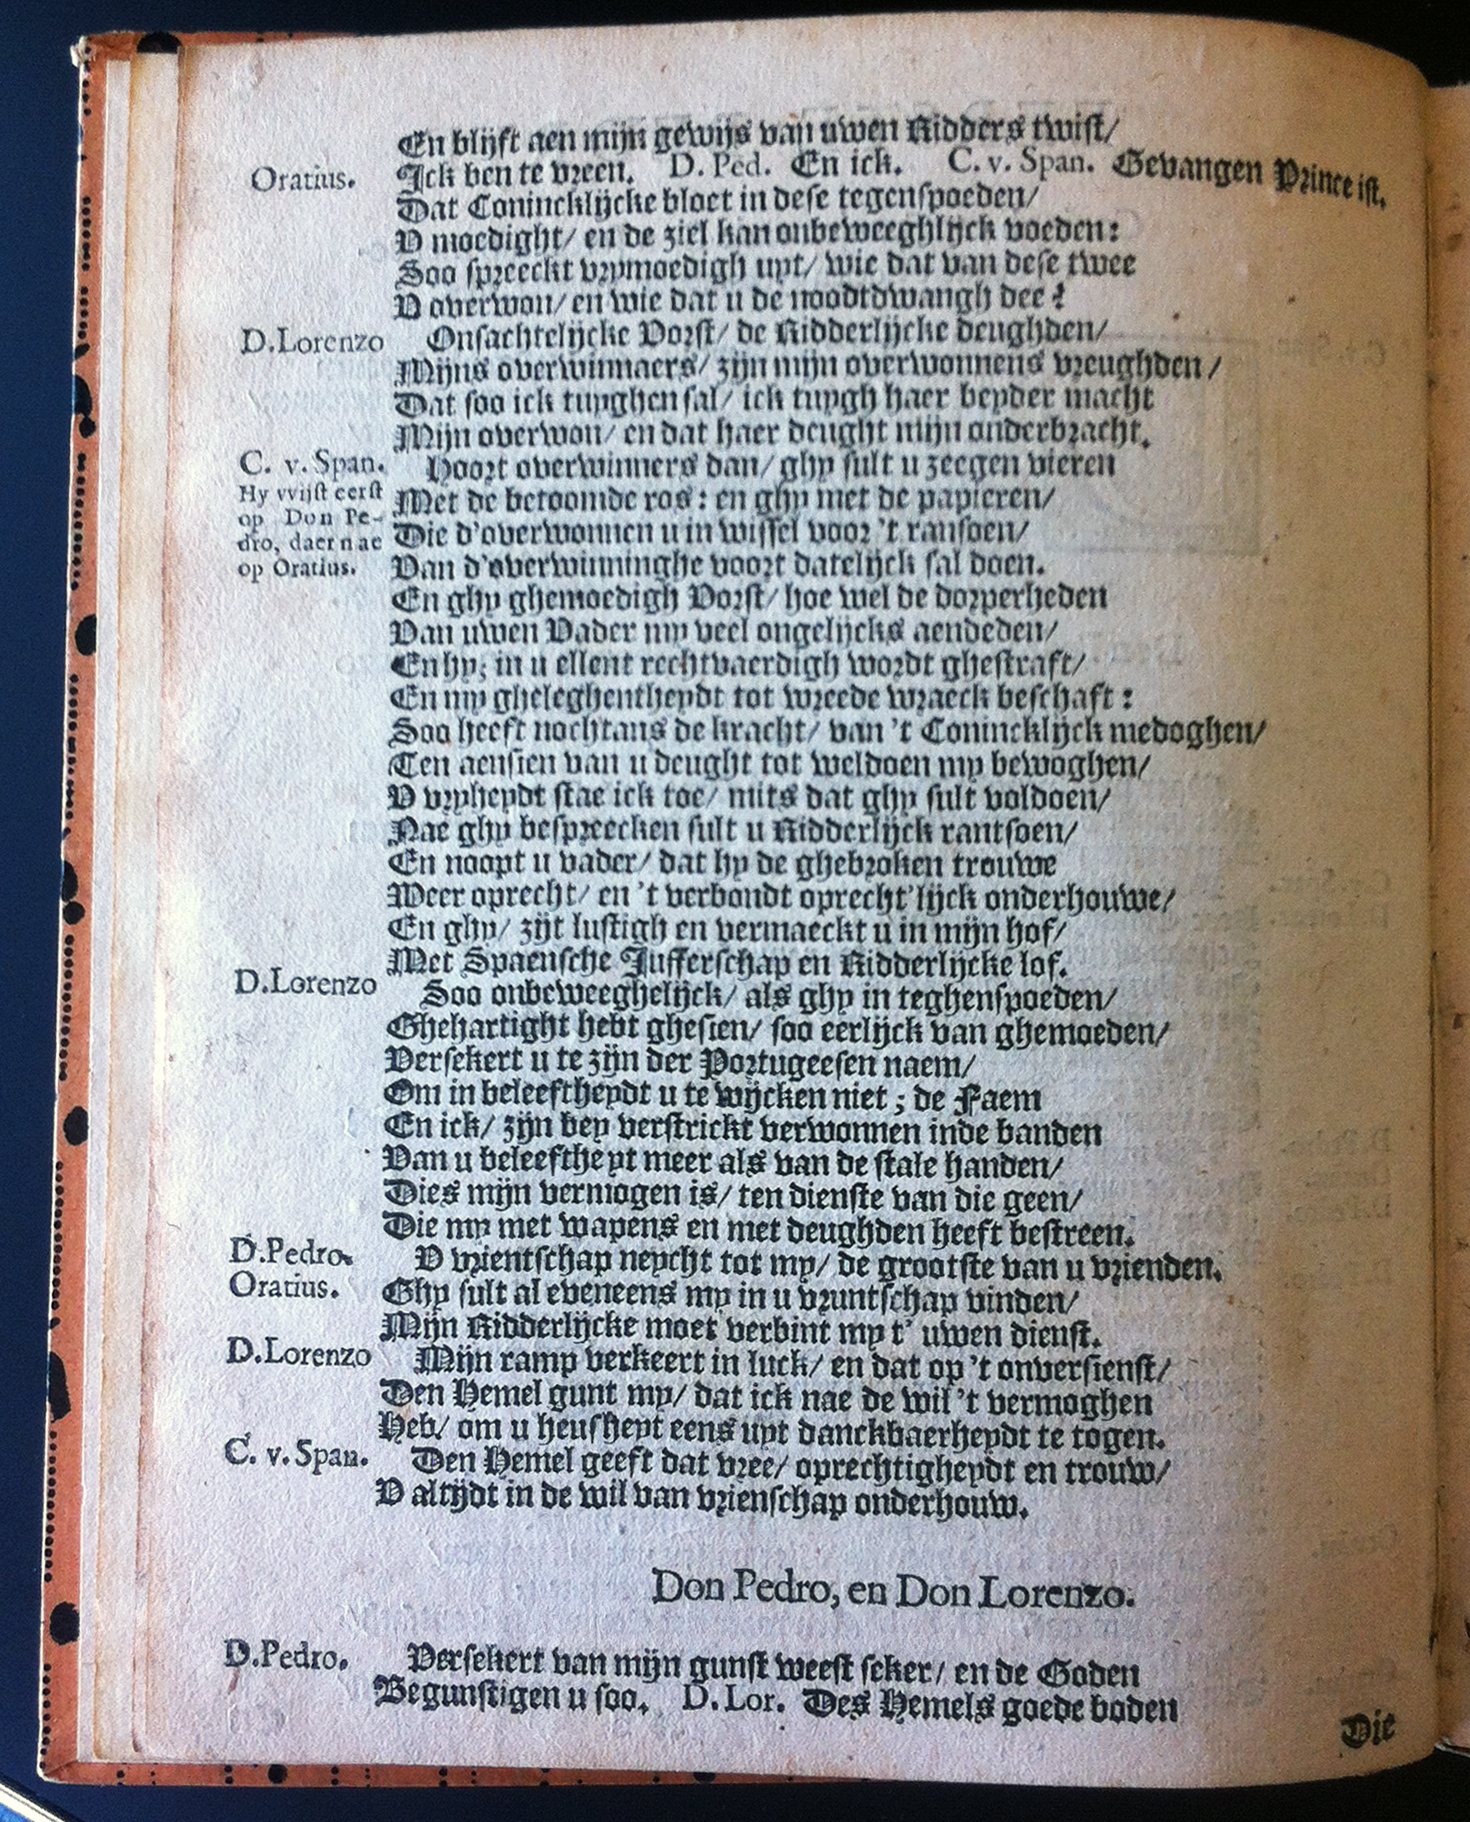 En blijft aen mijn gewijs van uwen Ridders twist/
Oratius. Ick ben te vreen. D. Ped. En ick. C. v. Span. Gevangen Prince ist,
Dat Conincklijcke bloet in dese tegenspoeden/
V moedight/ en de ziel kan onbeweeghlijck voeden:
Soo spreeckt vrymoedigh uyt/ wie dat van dese twee
V overwon/ en wie dat u de noodtdwangh dee?
D. Lorenzo Onsachtelijcke Vorst/ de Ridderlijcke deughden/
Mijns overwinnaers/ zijn mijn overwonnens vreughden/
Dat soo ick tuyghen sal/ ick tuygh haer beyder macht
Mijn overwon/ en dat haer deught mijn onderbracht.
C. v. Span. Hoort overwinners dan/ ghy sult u zeegen vieren
Hy vvijst eerst Met de betoomde ros: en ghy met de papieren/
op Don Pe- Die d'overwonnen u in wissel voor 't ransoen/
dro, daer nae Van d'overwinninghe voort datelijck sal doen.
op Oratius.
En ghy ghemoedigh Vorst/ hoe wel de dorperheden
Van uwen Vader my veel ongelijcks aendeden/
En hy; in u ellent rechtvaerdigh wordt ghestraft/
En my gheleghentheydt tot wreede wraeck beschaft:
Soo heeft nochtans de kracht/ van 't Conincklijck medoghen/
Ten aensien van u deught tot weldoen my bewoghen/
V vryheydt stae ick toe/ mits dat ghy sult voldoen/
Nae ghy bespreecken sult u Ridderlijck rantsoen/
En noopt u vader/ dat hy de ghebroken trouwe
Weer oprecht/ en 't verbondt oprecht'lijck onderhouwe/
En ghy/ zijt lustigh en vermaeckt u in mijn hof/
Met Spaensche Jufferschap en Ridderlijcke lof.
D. Lorenzo Soo onbeweeghelijck/ als ghy in teghenspoeden/
Ghehartight hebt ghesien/ soo eerlijck van ghemoeden/
Versekert u te zijn der Portugeesen naem/
Om in beleeftheydt u te wijcken niet; de Faem
En ick/ zijn bey verstrickt verwonnen inde banden
Van u beleeftheyt meer als van de stale handen/
Dies mijn vermogen is/ ten dienste van die geen/
Die my met wapens en met deughden heeft bestreen.
D. Pedro. V vrientschap neycht tot my/ de grootste van u vrienden.
Oratius. Ghy sult al eveneens my in u vruntschap vinden/
Mijn Ridderlijcke moet verbint my t' uwen dienst.
D. Lorenzo Mijn ramp verkeert in luck/ en dat op 't onversienst/
Den Hemel gunt my/ dat ick nae de wil 't vermoghen
Heb/ om u heusheyt eens uyt danckbaerheydt te togen.
C. v. Span. Den Hemel geeft dat vree/ oprechtigheydt en trouw/
V altijdt in de wil van vrienschap onderhouw.
Don Pedro, en Don Lorenzo.
D. Pedro. Versekert van mijn gunst weest seker/ en de Goden
Begunstigen u soo. D. Lor. Des Hemels goede boden
Die